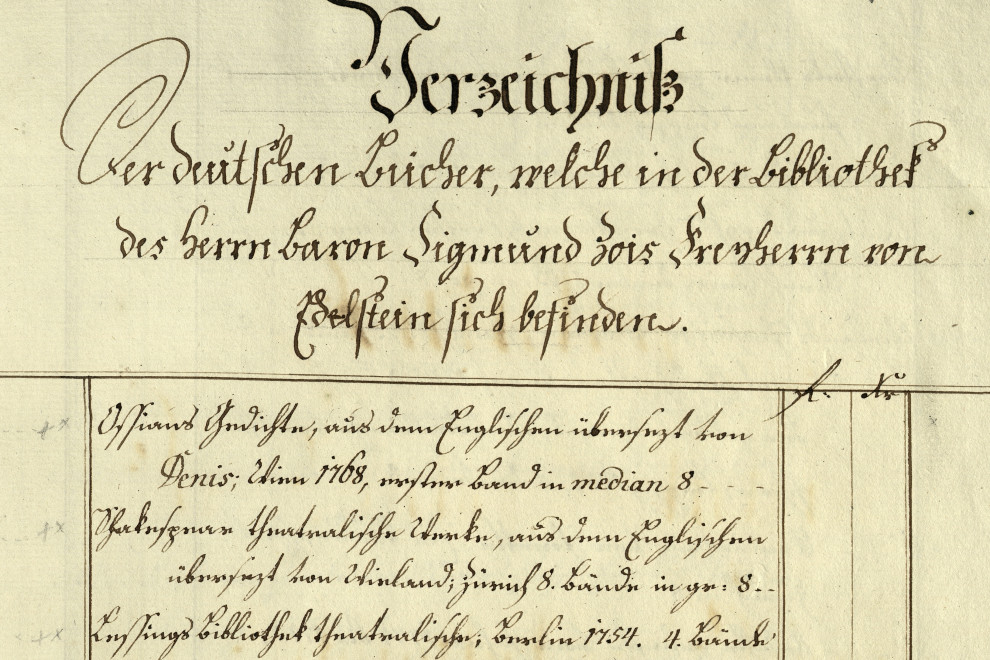 Verzeichniß
Der deütschen Bücher, welche in der Bibliothek
des Herrn Baron Sigmund Zois Freyherrn von
Edelstein sich befinden.
fl: Kr
Ossians Gedichte, aus dem Englischen übersezt von
Denis; Wien 1768, erster Band in median 8 - - -
Shakespear theatralische Werke, aus dem Englischen
übersezt von Wieland; Zürich 8. Bände in gr: 8 - -
Lessings Bibliothek theatralische; Berlin 1754. 4. Bände